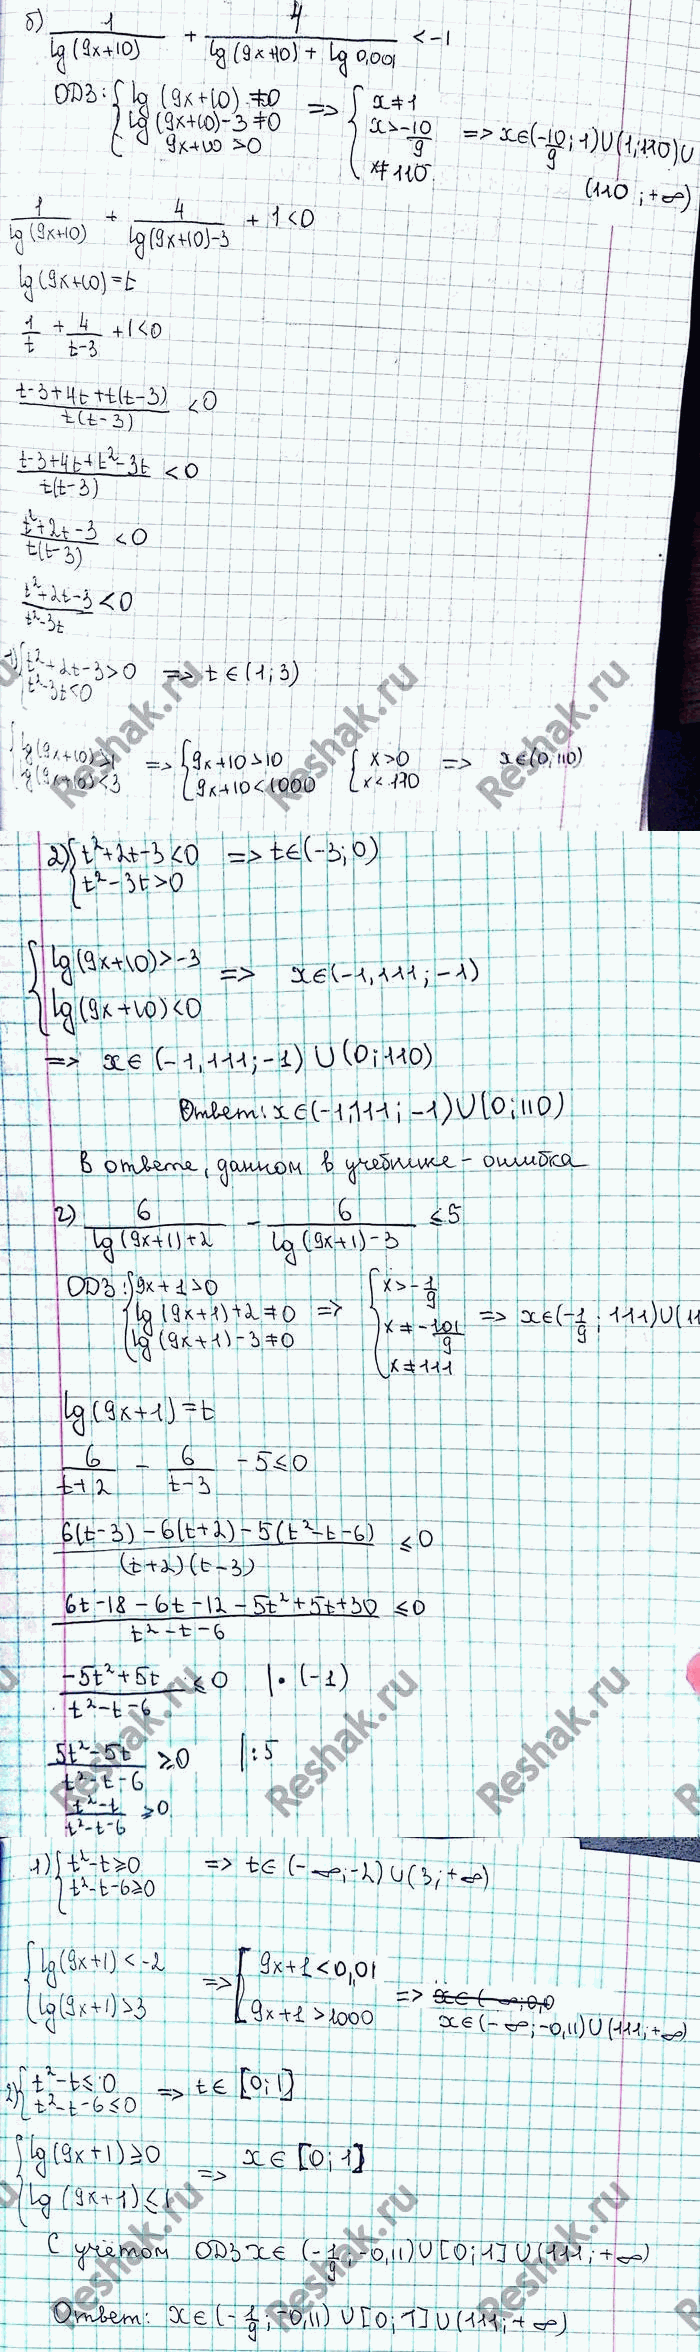 б) 1/lg(9x+10) + 4/(lg(9x+10) + lg 0,001) < -1
ОДЗ: { lg(9x+10) ≠0
lg(9x+10)-3≠0
9x+10 >0
=> { x≠1
x>-10/9
x≠110
=> x∈(-10/9; 1)∪(1;110)∪
(110; +∞)
1/lg(9x+10) + 4/(lg(9x+10)-3) + 1<0
lg(9x+10)=t
1/t + 4/(t-3) +1<0
(t-3+4t+t(t-3))/(t(t-3)) <0
(t-3+4t+t²-3t)/(t(t-3)) <0
(t²+2t-3)/(t(t-3)) <0
(t²+2t-3)/(t²-3t) <0
1) { t²+2t-3>0
t²-3t<0
=> t∈(1;3)
{ lg(9x+10)>1
lg(9x+10)<3
=> { 9x+10>10
9x+10<1000
{ x>0
x<110
=> x∈(0,110)
2) { t²+2t-3<0
t²-3t>0
=> t∈(-3;0)
{ lg(9x+10)>-3
lg(9x+10)<0
=> x∈(-1,111;-1)
=> x∈(-1,111;-1)∪(0;110)
Ответ: x∈(-1,111;-1)∪(0;110)
В ответе, данном в учебнике - ошибка
г) 6/(lg(9x+1)+2) - 6/(lg(9x+1)-3) ≤5
ОДЗ: { 9x+1>0
lg(9x+1)+2≠0
lg(9x+1)-3≠0
=> { x>-1/9
x≠-101/9
x≠111
=> x∈(-1/9; 111)∪(11
lg(9x+1)=t
6/(t+2) - 6/(t-3) -5≤0
(6(t-3)-6(t+2)-5(t²-t-6))/((t+2)(t-3)) ≤0
(6t-18-6t-12-5t²+5t+30)/(t²-t-6) ≤0
(-5t²+5t)/(t²-t-6) ≤0 |·(-1)
(5t²-5t)/(t²-t-6) ≥0 |:5
(t²-t)/(t²-t-6) ≥0
1) { t²-t≥0
t²-t-6≥0
=> t∈(-∞;-2)∪(3;+∞)
{ lg(9x+1)<-2
lg(9x+1)>3
=> [ 9x+1<0,01
9x+1>1000
=> x∈(-∞;0,0
x∈(-∞;-0,11)∪(111;+∞)
2) { t²-t≤0
t²-t-6≤0
=> t∈[0;1]
{ lg(9x+1)≥0
lg(9x+1)≤1
=> x∈[0;1]
С учётом ОДЗ x∈(-1/9;-0,11)∪[0;1]∪(111;+∞)
Ответ: x∈(-1/9;-0,11)∪[0;1]∪(111;+∞)
Reshak.ru
Reshak.ru
Reshak.ru
Reshak.ru
Reshak.ru
Reshak.ru
Reshak.ru
Reshak.ru
Reshak.ru